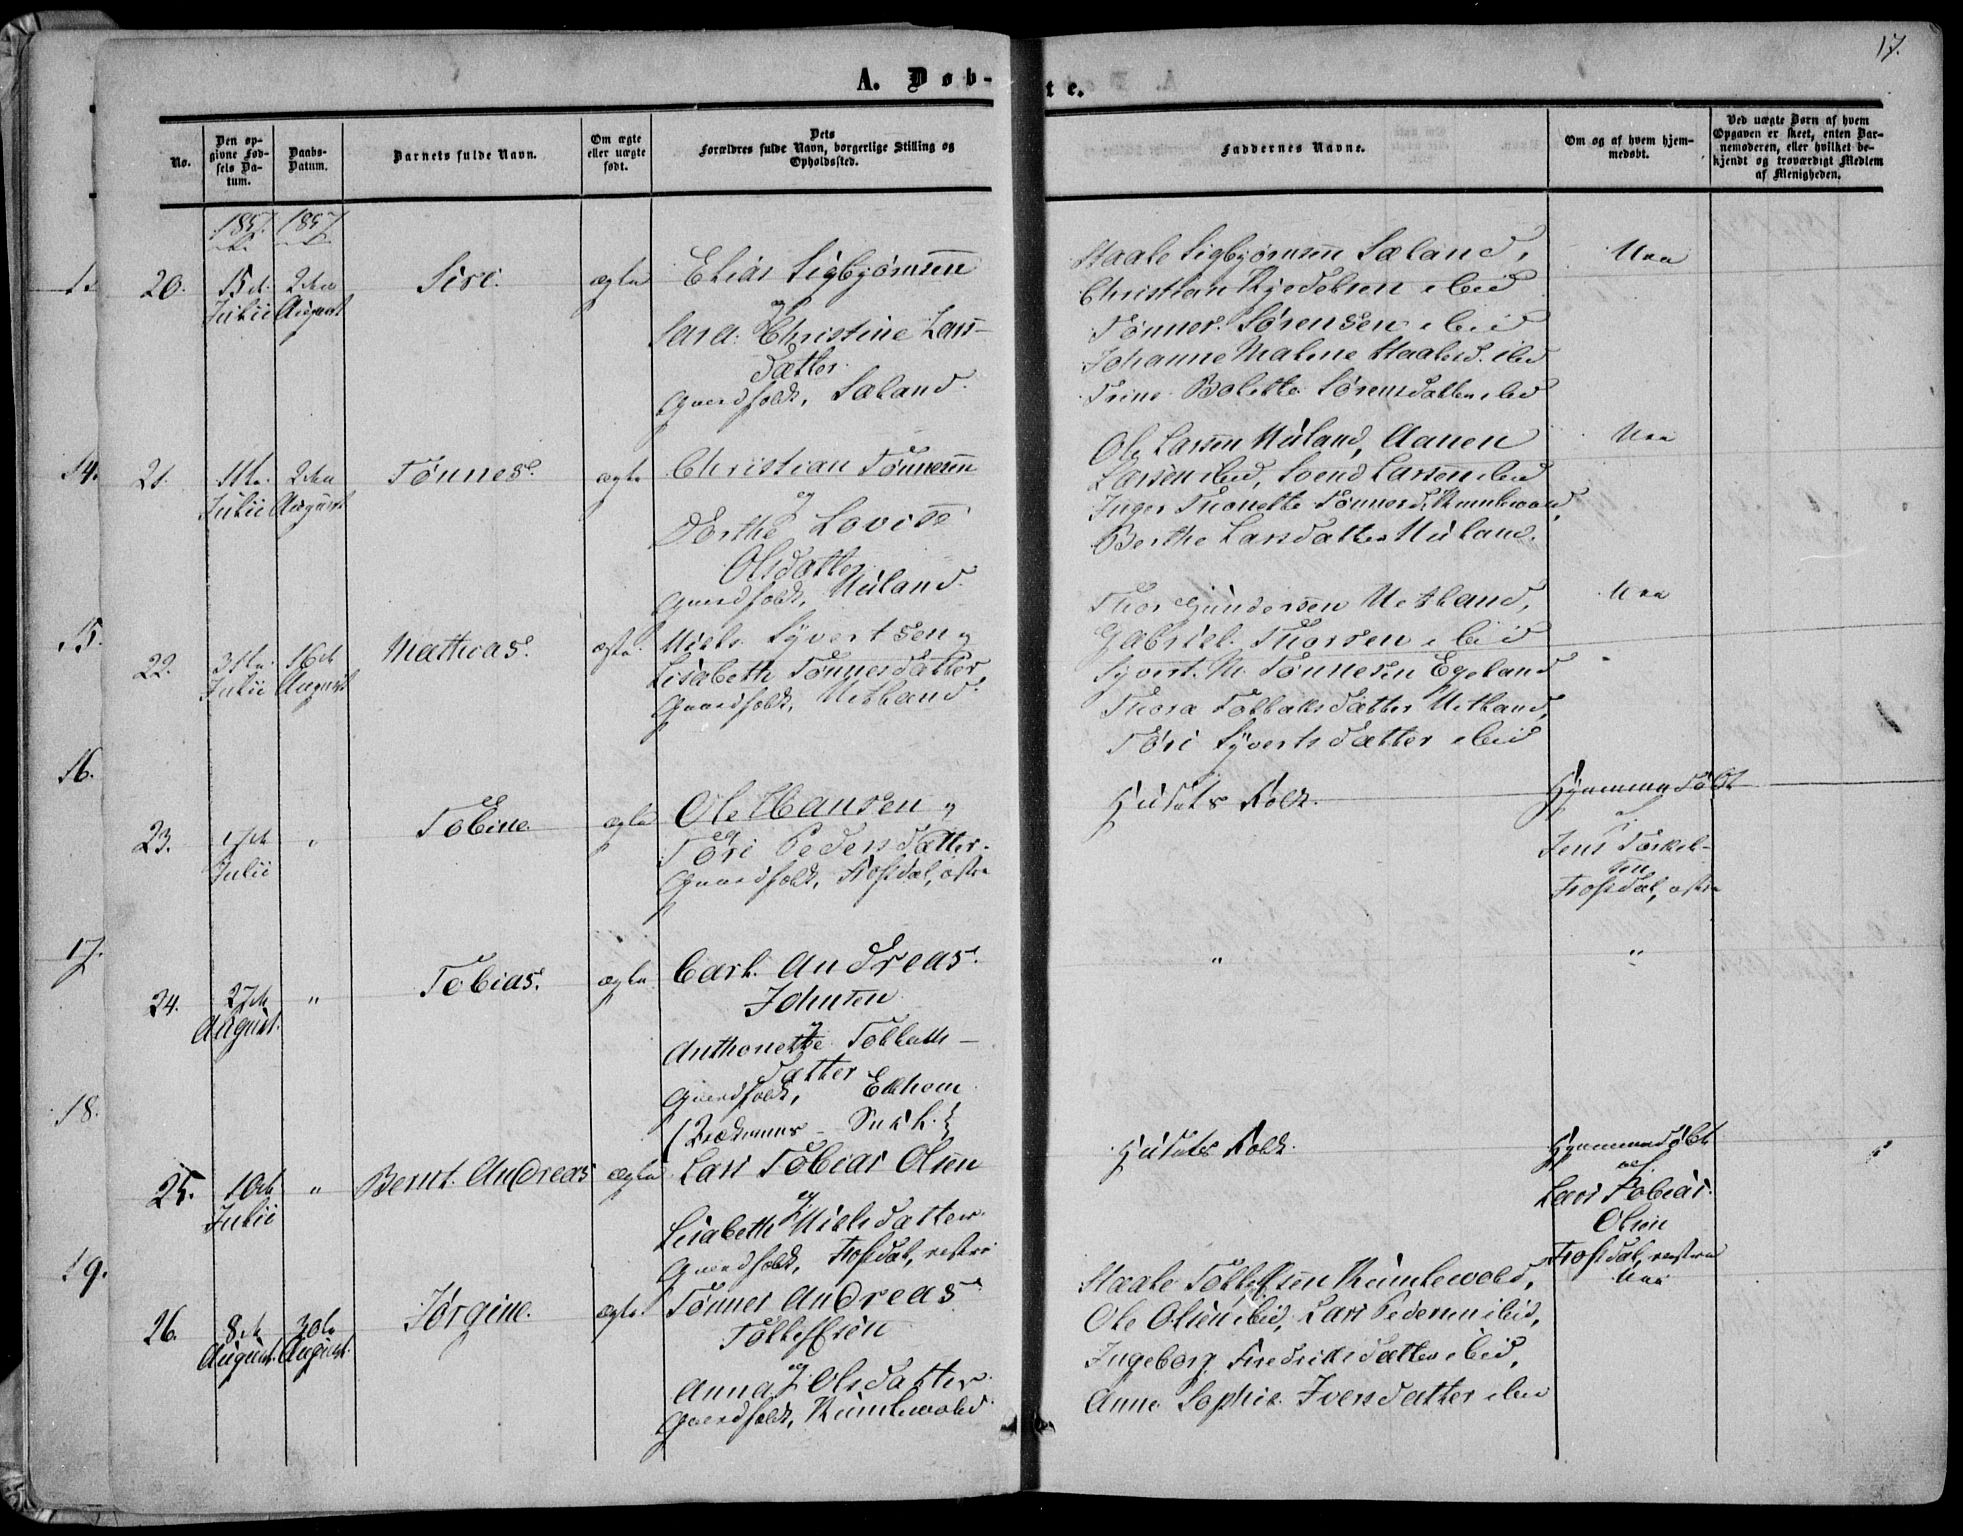 17.
A. Døb-
te.
No.
Den op-
givne Fød-
sels Da-
tum.
Daabs-
Datum.
Barnets fulde Navn.
Om ægte
eller uægte
født.
Dets
Forældres fulde Navn, borgerlige Stilling og
Opholdssted.
Faddernes Navne.
Om og af hvem hjem-
medøbt.
Ved uægte Børn af hvem
Opgaven er skeet, enten Bar-
nemoderen, eller hvilket be-
kjendt og troværdigt Medlem
af Menigheden.
1857. 1857
20.
15de Julii
2den August
Siri.
ægte
Elias Sigbjørnsen
og
Sara Christine Lars-
datter
Gaardfolk, Sæland.
Staale Sigbjørnsen Sæland,
Christian Kjedelsen ibid
Tønnes Sørensen ibid
Johanne Malene Staalesd. ibid
Trine Bolette Sørensdatter ibid
21.
11te Julii
2den August
Tønnes.
ægte
Christian Tønnesen
og
Dorthe Lovise
Olsdatter
Gaardfolk, Nuland.
Ole Larsen Nuland, Aanen
Larsen ibid, Svend Larsen ibid
Inger Thonette Tønnesd.
Berthe Larsdatter Nuland.
22.
31te Julii
16de August
Mathias.
ægte
Niels Syvertsen og
Lisabeth Tønnesdatter
Gaardfolk, Netland.
Thor Gundersen Netland,
Gabriel Thorsen ibid
Syvert N. Tønnesen Egeland
Thora Tollaksdatter Netland,
Tori Syvertsdatter ibid
23.
17de Julii
"
Tobine
ægte
Ole Hansen
og
Tori Pedersdatter.
Gaardfolk, Frosdal, østre
Husets Folk.
Hjemmedøbt
af
Jens Torkel-
sen
Frosdal, østre
24.
27de August.
"
Tobias.
ægte
Carl Andreas
Johnsen
og
Anthonette Tollaks-
datter
Gaardfolk,
"
"
25.
10de Julii
"
Bernt Andreas
ægte
Lars Tobias Olsen
og
Lisabeth Nielsdatter
Gaardfolk, Frosdal, vestre
Husets Folk.
Hjemmedøbt
af
Lars Tobias
Olsen
Frosdal, vestre
26.
8de August.
30te August.
Jørgine.
ægte
Tønnes Andreas
Tollefsen
og
Anna Olsdatter
Gaardfolk, Rumlewold.
Staale Tollefsen Rumlewold,
Ole Olsen ibid, Lars Pedersen ibid,
Ingeborg Fredriksdatter ibid,
Anne Sophie Iversdatter ibid
14.
15.
16.
17.
18.
19.